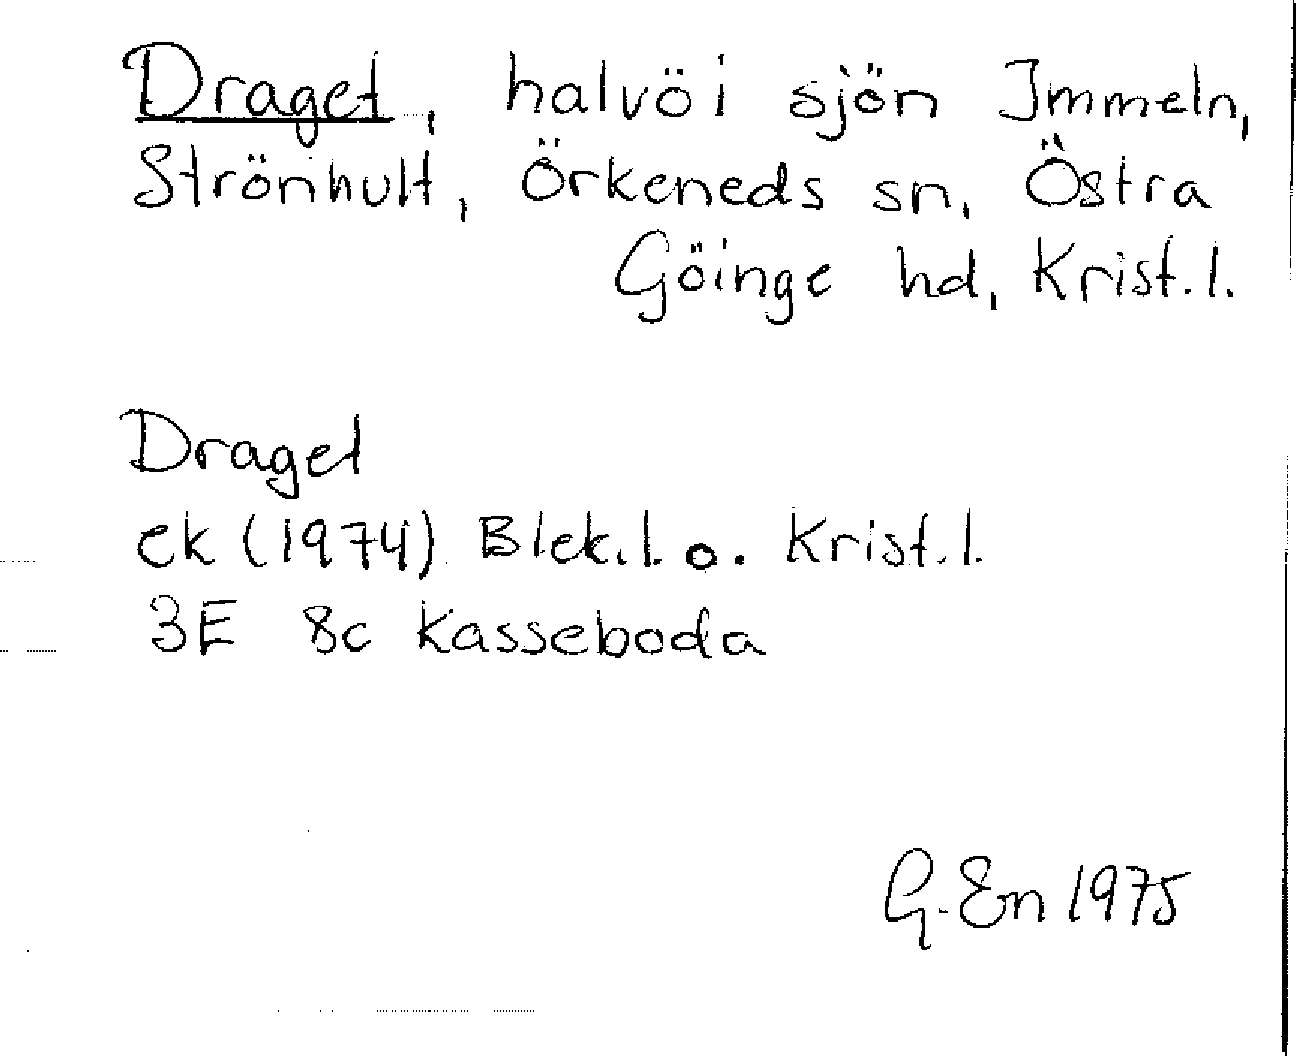 Draget, halvö i sjön Immeln,
Strönhult, Örkeneds sn, Östra
Göinge hd, Krist.l.
Draget
ek (1974) Blek.l. o. Krist.l.
3E 8c Kasseboda
G. En 1975